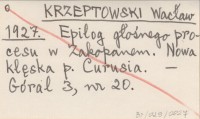 KRZEPTOWSKI Wacław
1927. Epilog głośnego pro-
cesu w Zakopanem. Nowa
klęska p. Curusia. –
Góral 3, nr 20.